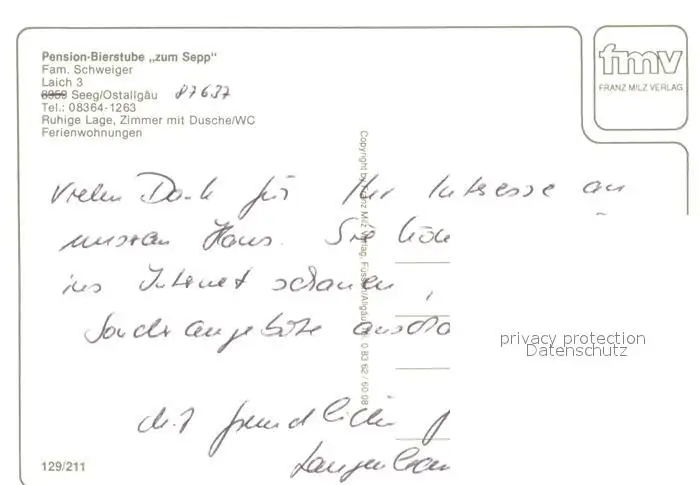 Pension-Bierstube „zum Sepp"
Fam. Schweiger
Laich 3
8959 Seeg/Ostallgäu 87637
Tel.: 08364-1263
Ruhige Lage, Zimmer mit Dusche/WC
Ferienwohnungen
fmv
FRANZ MILZ VERLAG
Copyright by Franz Milz Verlag, Füssen/Allgäu, Tel. 0 83 62 / 60 08
Vielen Dank für Ihr Interesse an
unseren Haus. Sie kön
ins Internet schauen,
Sonderangebote
privacy protection
Datenschutz
mit freundlichen
129/211